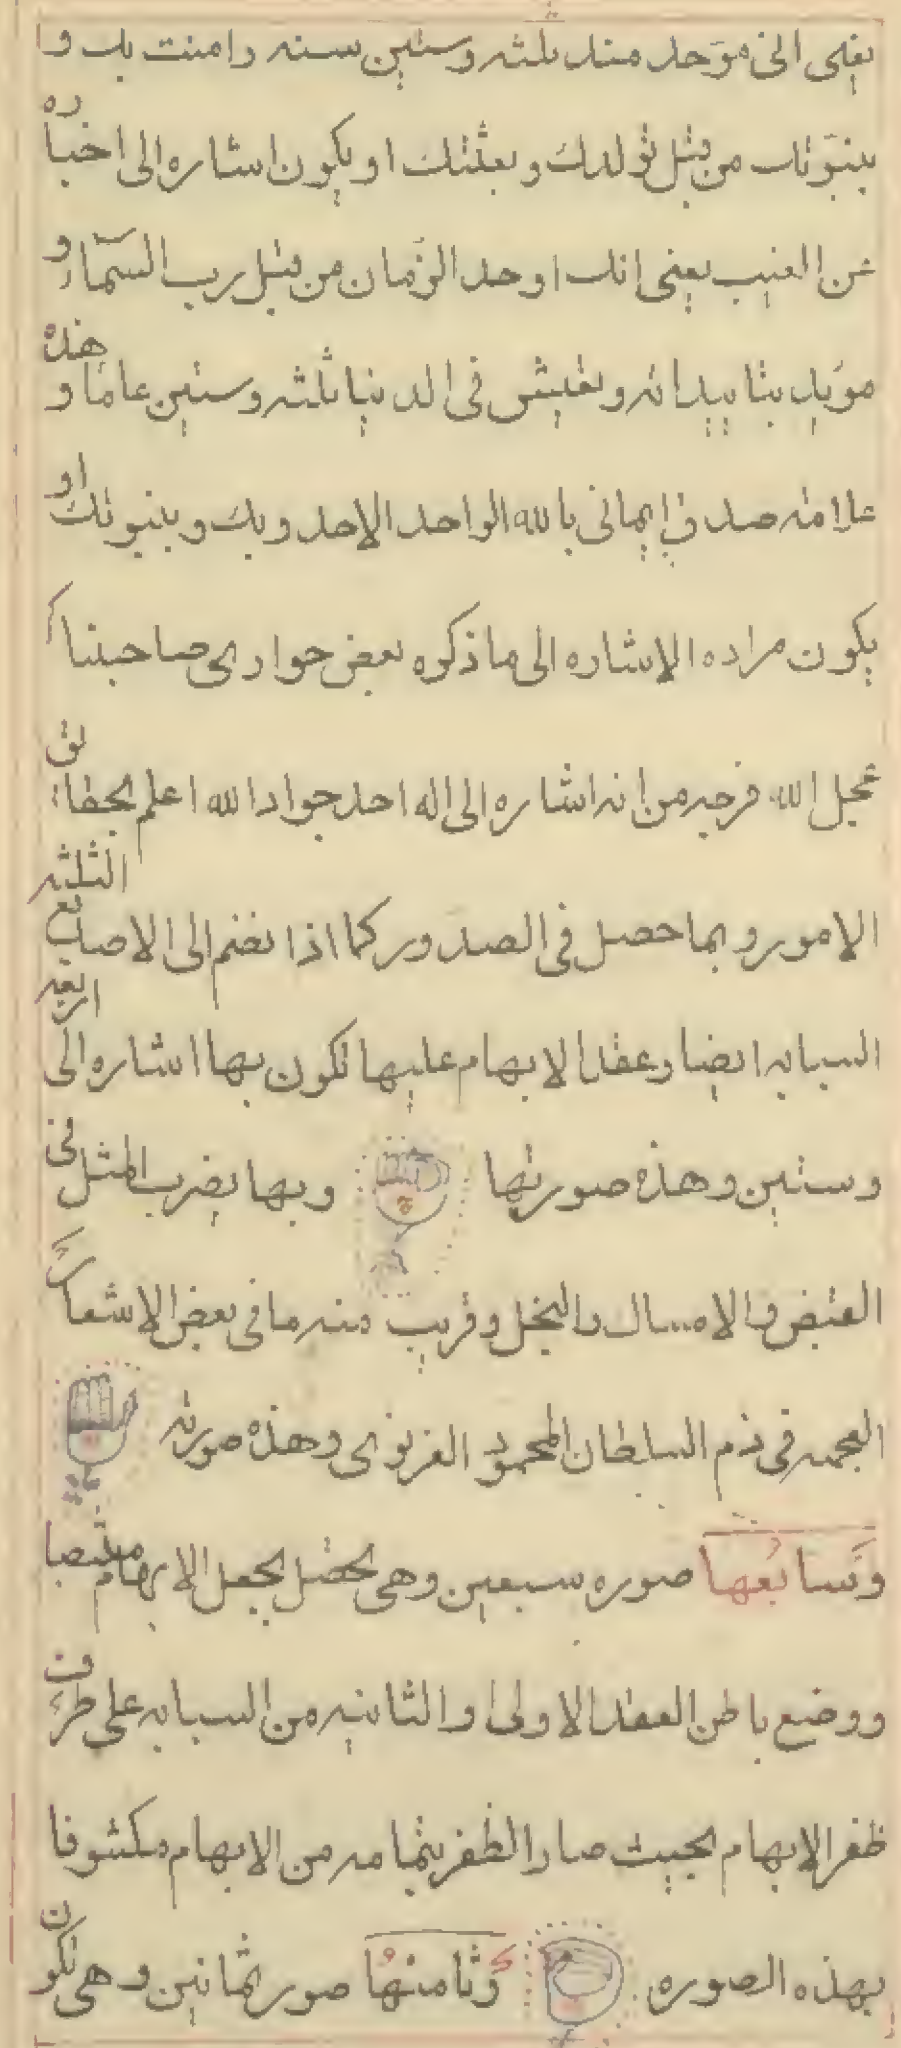 يعنى انى موحد منذ ثلثه وستين سنه وامنت بك و
بنبوّتك من قبل تولدك وبعثتك او يكون اشاره الى اخباره
عن الغيب يعنى انك اوحد الزمان من قبل رب السّماء و
مؤيد بتاييداته وتعيش فى الدنيا ثلثه وستين عاما و هذه
علامته صدق ايمانى بالله الواحد الاحد وبك وبنبوتك او
يكون مراده الاشاره الى ما ذكره بعض حوارى صاحبنا
عجل الله فرجه من انه اشاره الى اله احد جواد الله اعلم بحقائق
الامور وبما حصل فى الصدور كما اذا نضم الى الاصابع الثلثه
السبابه ايضا وعقد الابهام عليها تكون بها اشاره الى اربعه
وستين وهذه صورتها وبها يضرب المثل فى
القبض والامساك والبخل وقريب منه ما فى بعض الاشعار
العجميه فى ذم السلطان المحمود الغزنوى وهذه صورته
وسابعها صوره سبعين وهى تحصل بجعل الابهام منتصبا
ووضع باطن العقد الاولى او الثانيه من السبابه على طرف
ظفر الابهام بحيث صار الظفر بتمامه من الابهام مكشوفا
بهذه الصوره وثامنها صور ثمانين وهى تكون